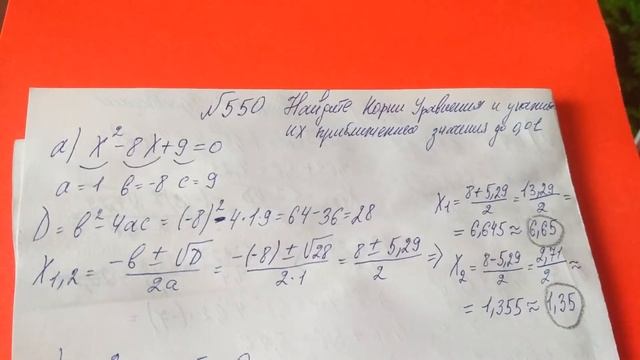 №550 Найдите корни уравнения и укажите
их приближенные значения до 0,01
а) x²-8x+9=0
a=1 b=-8 c=9
D=b²-4ac=(-8)²-4·1·9=64-36=28
X1,2=-b±√D/2a=-(-8)±√28/2·1=8±5,29/2=>
X1=8+5,29/2=13,29/2=
=6,645≈6,65
X2=8-5,29/2=2,71/2≈
=1,355≈1,35